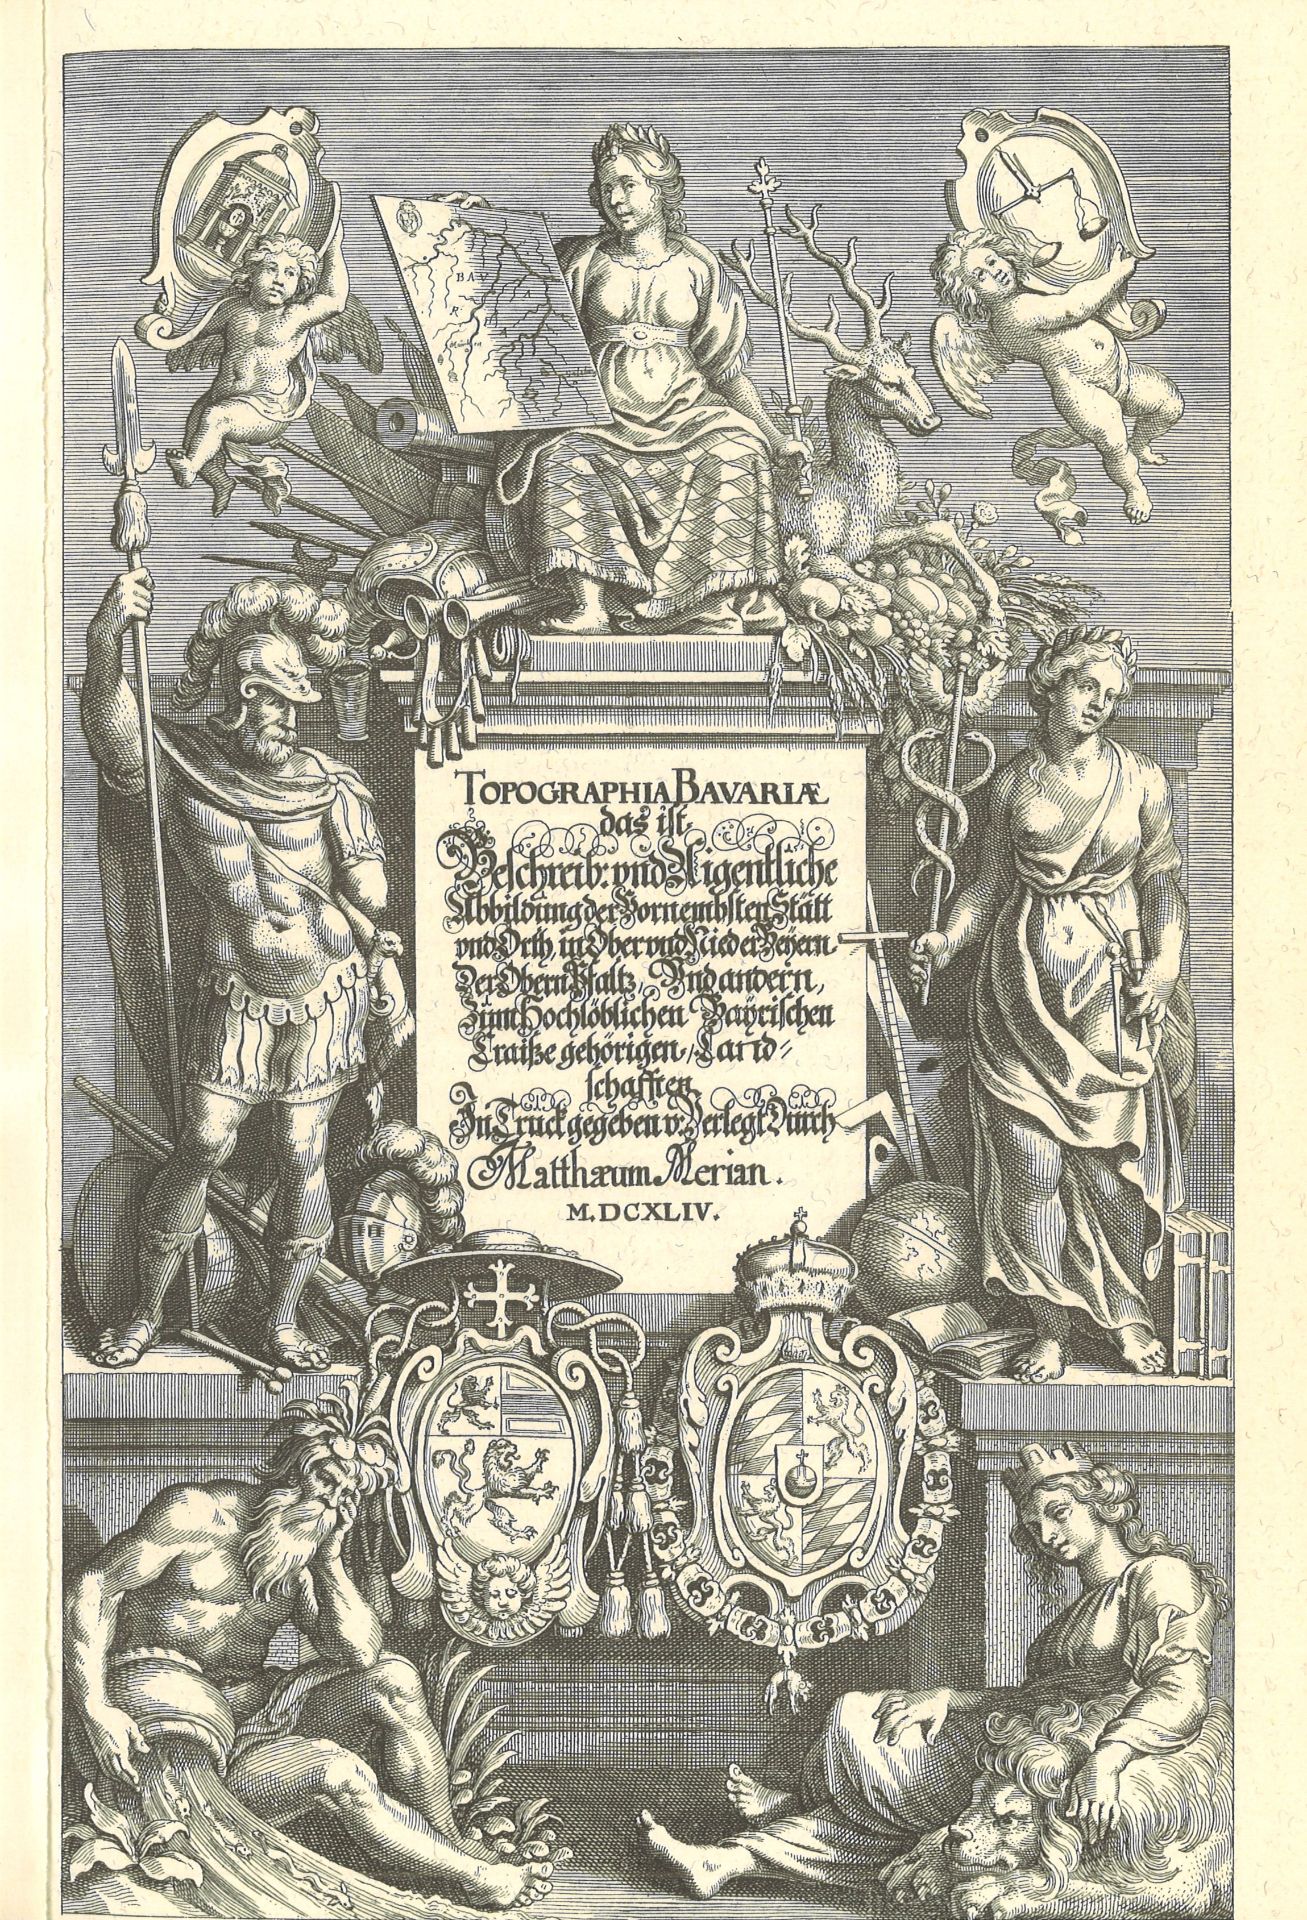 BAVAR
München
TOPOGRAPHIA BAVARIÆ
das ist.
Beschreib: vnd Aigentliche
Abbildung der Vornembsten Stätt
vnd Orth, in Ober vnd Nieder Beyern.
Der Obern Pfaltz, Vnd andern,
Zum Hochlöblichen Bayrischen
Craiße gehörigen, Land-
schafften.
In Truck gegeben v: Verlegt Durch
Matthæum Merian.
M.DCXLIV.